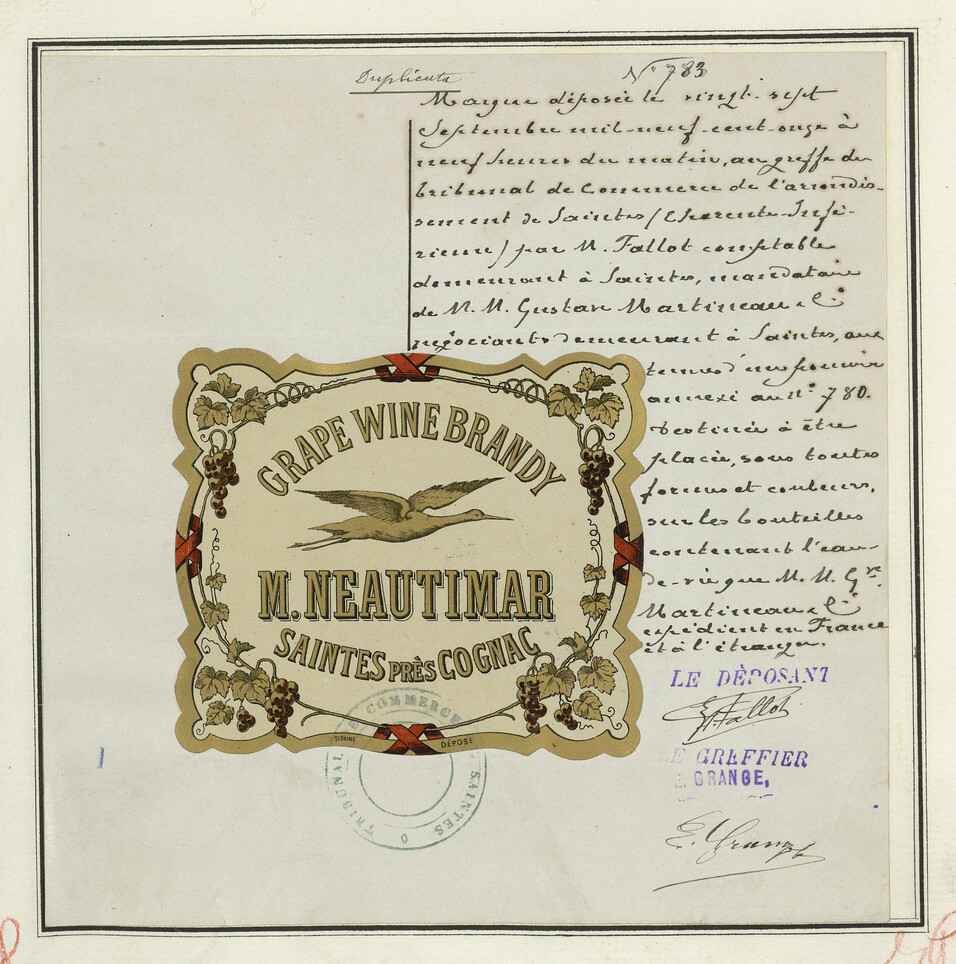 Duplicata
N° 783
Marque déposée le vingt-sept
Septembre mil-neuf-cent-onze à
neuf heures du matin, au greffe du
tribunal de Commerce de l'arrondis-
sement de Saintes (Charente-Infé-
rieure) par M. Fallot comptable
demeurant à Saintes, mandataire
de M.M. Gustave Martineau & Cie
négociants demeurant à Saintes, aux
termes d'un pouvoir
annexé au n° 780.
Destinée à être
placée, sous toutes
formes et couleurs,
sur les bouteilles
contenant l'eau-
de-vie que M.M. Gve
Martineau & Cie
expédient en France
et à l'étranger.
GRAPE WINE BRANDY
M. NEAUTIMAR
SAINTES PRÈS COGNAC
DÉPOSÉ
TRIBUNAL DE COMMERCE
SAINTES
LE DÉPOSANT
Fallot
LE GREFFIER
E. GRANGE,
E. Grange